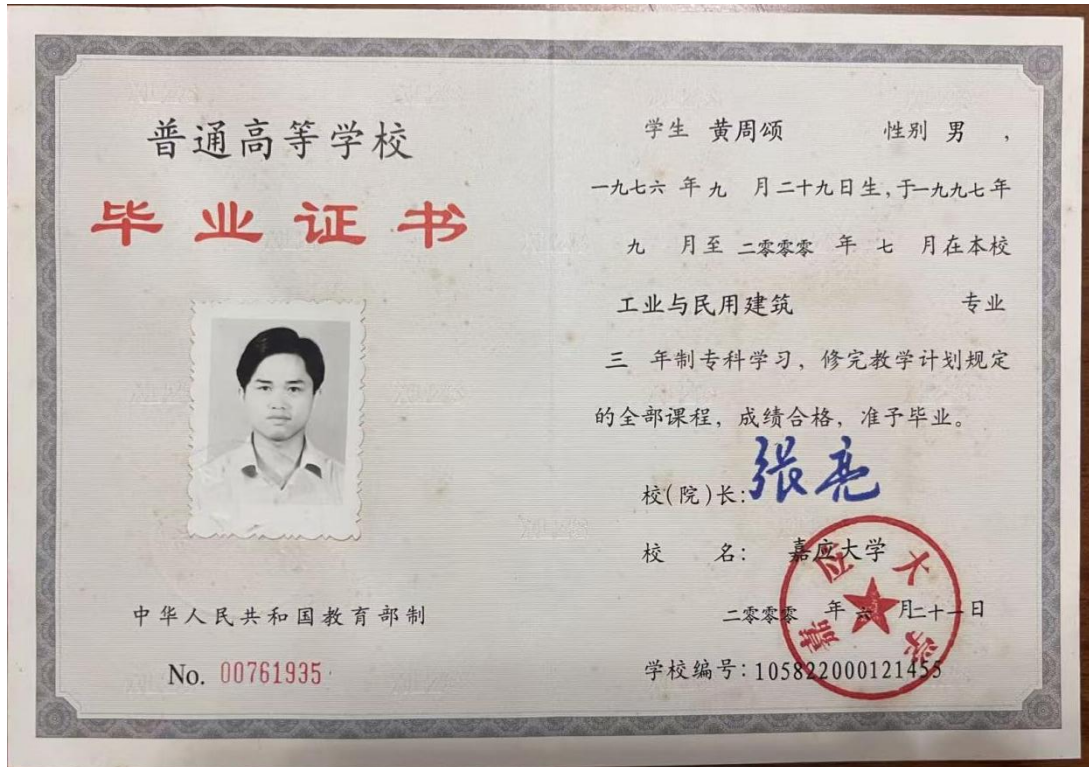 普通高等学校
毕业证书
中华人民共和国教育部制
No. 00761935
学生 黄周颂 性别 男 ,
一九七六 年 九 月二十九日生,于一九九七年
九 月至 二零零零 年 七 月在本校
工业与民用建筑 专业
三 年制专科学习，修完教学计划规定
的全部课程，成绩合格，准予毕业。
校(院)长: 张亮
校 名: 嘉应大学
二零零零 年 六 月二十一日
学校编号: 105822000121455
嘉应大学